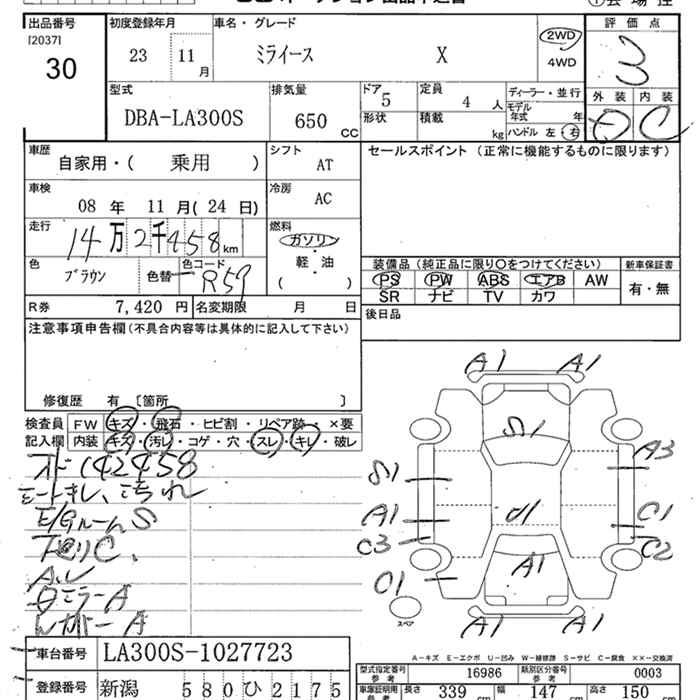 出品番号 初度登録年月 車名・グレード 評価点
[2037]
30 23 11月 ミライース X 2WD 4WD 3
型式 排気量 ドア 定員 ディーラー・並行 外装 内装
DBA-LA300S 650 CC 5 4 人 モデル年式 年 D C
形状 積載 kg ハンドル 左・右
車歴 シフト セールスポイント (正常に機能するものに限ります)
自家用・( 乗用 ) AT
車検 冷房
08 年 11 月 ( 24 日) AC
走行 燃料
14万2千458km ガソリン
軽・油
( )
色 色コード 装備品 (純正品に限り○をつけてください) 新車保証書
ブラウン 色替 R59 PS PW ABS エアB AW 有・無
SR ナビ TV カワ
R券 7,420 円 名変期限 月 日 後日品
注意事項申告欄 (不具合内容等は具体的に記入して下さい)
修復歴 有 [箇所 ]
検査員 FW キズ・飛石・ヒビ割・リペア跡・×要
記入欄 内装 キズ・汚レ・コゲ・穴・スレ・キレ・破レ
142458
シートキレ、汚れ
E/GルームS
下回りC、
A、U
A1 A1
S1
A3
S1
A1 U1 C1
C3 C2
A1
A1 A1
スペア
車台番号 LA300S-1027723
登録番号 新潟 580ひ2175
A-キズ E-エクボ U-凹み W-補修跡 S-サビ C-腐食 ××-交換済
型式指定番号 参考 16986 類別区分番号 参考 0003
車庫証明用 参考 長さ 339 cm 幅 147 cm 高さ 150 cm